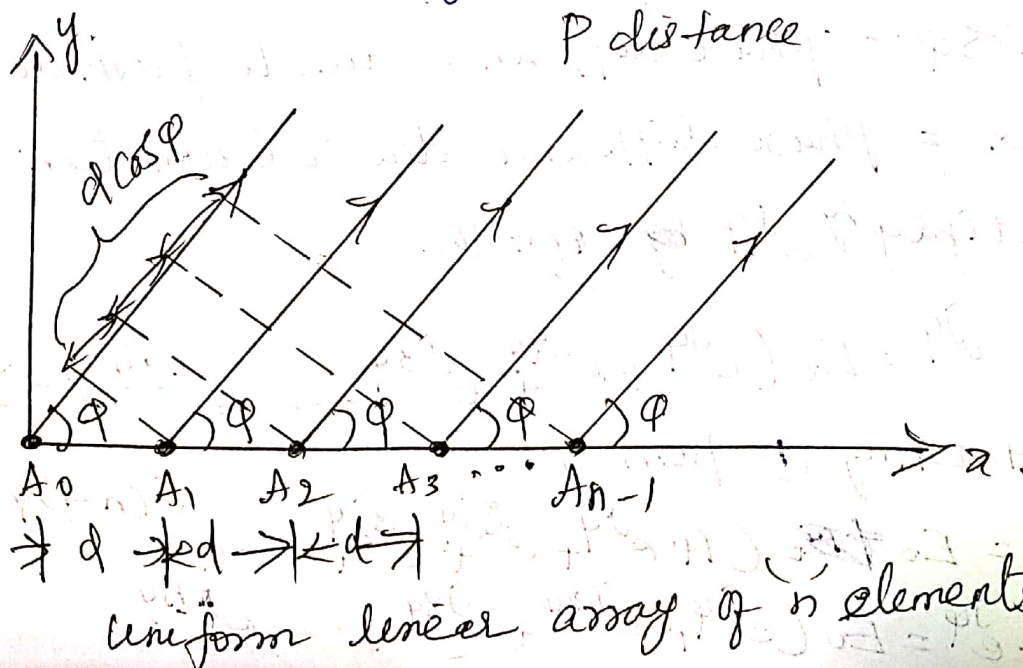 y.
P distance.
d cos φ
φ φ φ φ φ
x
A0 A1 A2 A3 .... An-1
d d d
uniform linear array of 'n' elements